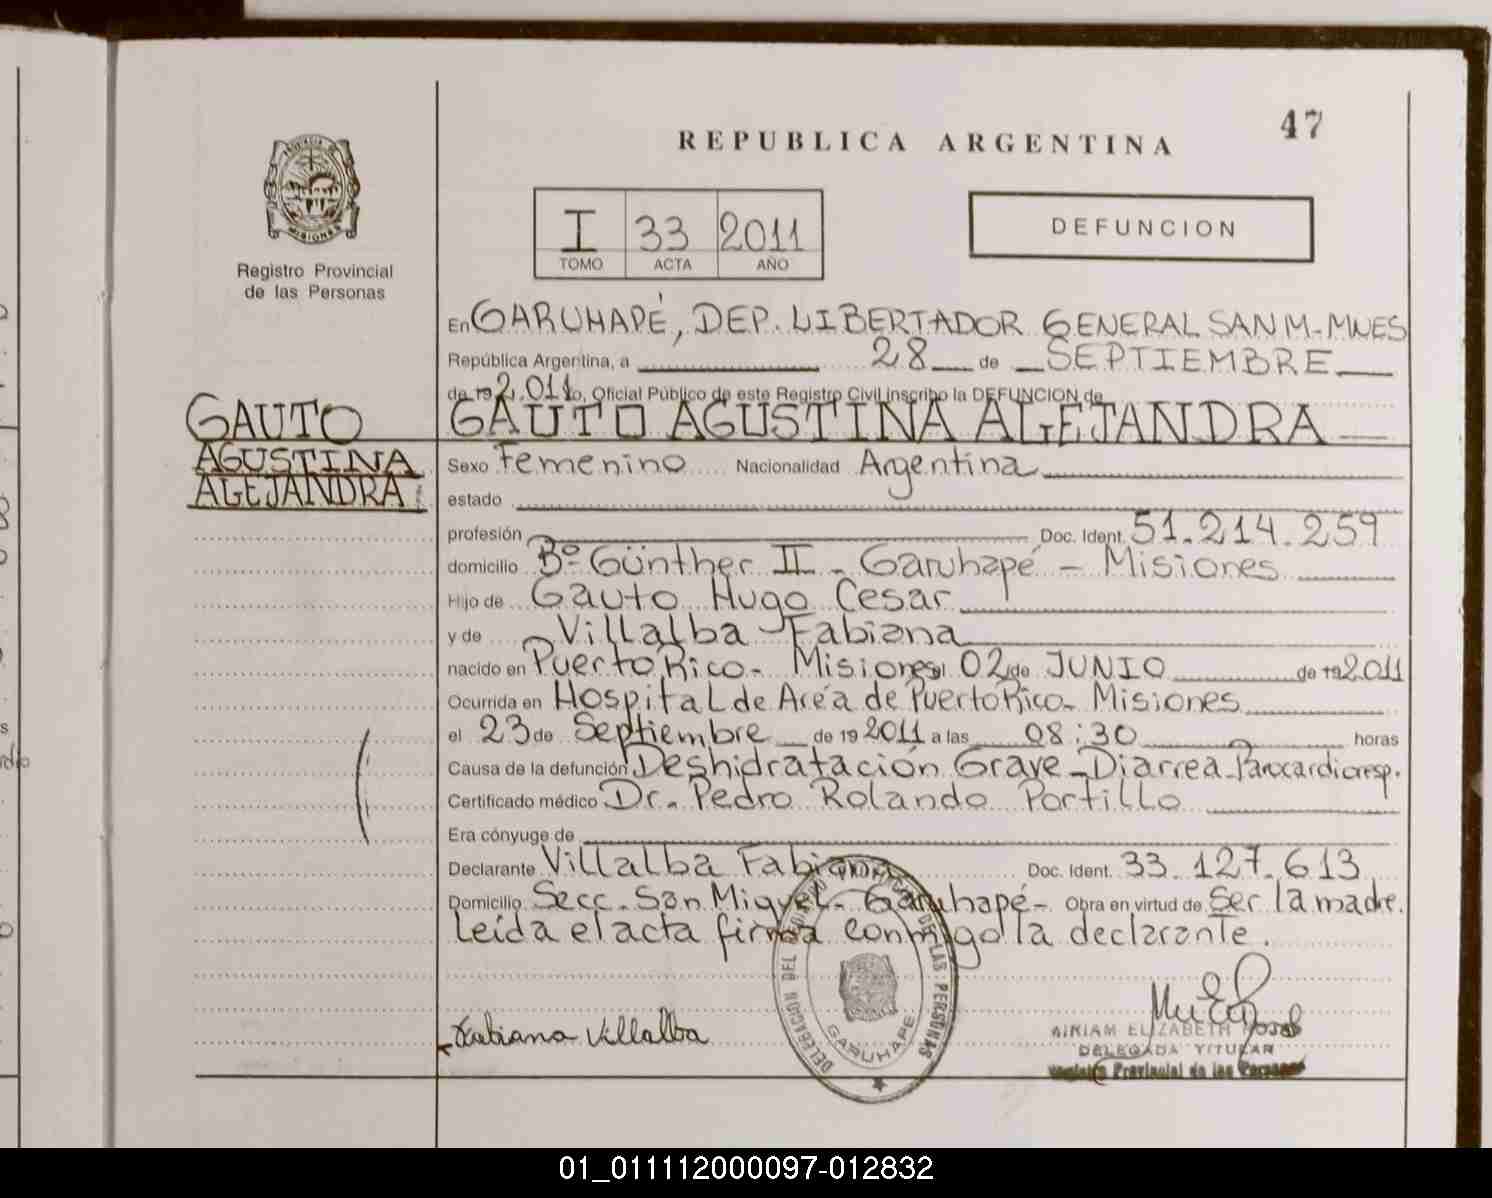 47
REPUBLICA ARGENTINA
I 33 2011
TOMO ACTA AÑO
DEFUNCION
MISIONES
Registro Provincial
de las Personas
En GARUHAPÉ, DEP. LIBERTADOR GENERAL SAN M.-MNES
República Argentina, a 28 de SEPTIEMBRE
de 19 2.011 yo, Oficial Público de este Registro Civil inscribo la DEFUNCION de
GAUTO AGUSTINA ALEJANDRA
GAUTO
AGUSTINA
ALEJANDRA
Sexo Femenino Nacionalidad Argentina
estado
profesión Doc. Ident. 51.214.259
domicilio Bº Günther II - Garuhapé - Misiones
Hijo de Gauto Hugo Cesar
y de Villalba Fabiana
nacido en Puerto Rico - Misiones el 02 de JUNIO de 19 2011
Ocurrida en Hospital de Area de Puerto Rico - Misiones
el 23 de Septiembre de 19 2011 a las 08:30 horas
Causa de la defunción Deshidratación Grave - Diarrea - Parocardioresp.
Certificado médico Dr. Pedro Rolando Portillo
Era cónyuge de
Declarante Villalba Fabiana Doc. Ident. 33.127.613
Domicilio Secc. San Miguel - Garuhapé - Obra en virtud de Ser la madre.
Leída el acta firma conmigo la declarante.
Fabiana Villalba
DELEGACION DEL REGISTRO PROVINCIAL DE LAS PERSONAS
GARUHAPE
MIRIAM ELIZABETH ROJAS
DELEGADA TITULAR
Registro Provincial de las Personas
01_011112000097-012832